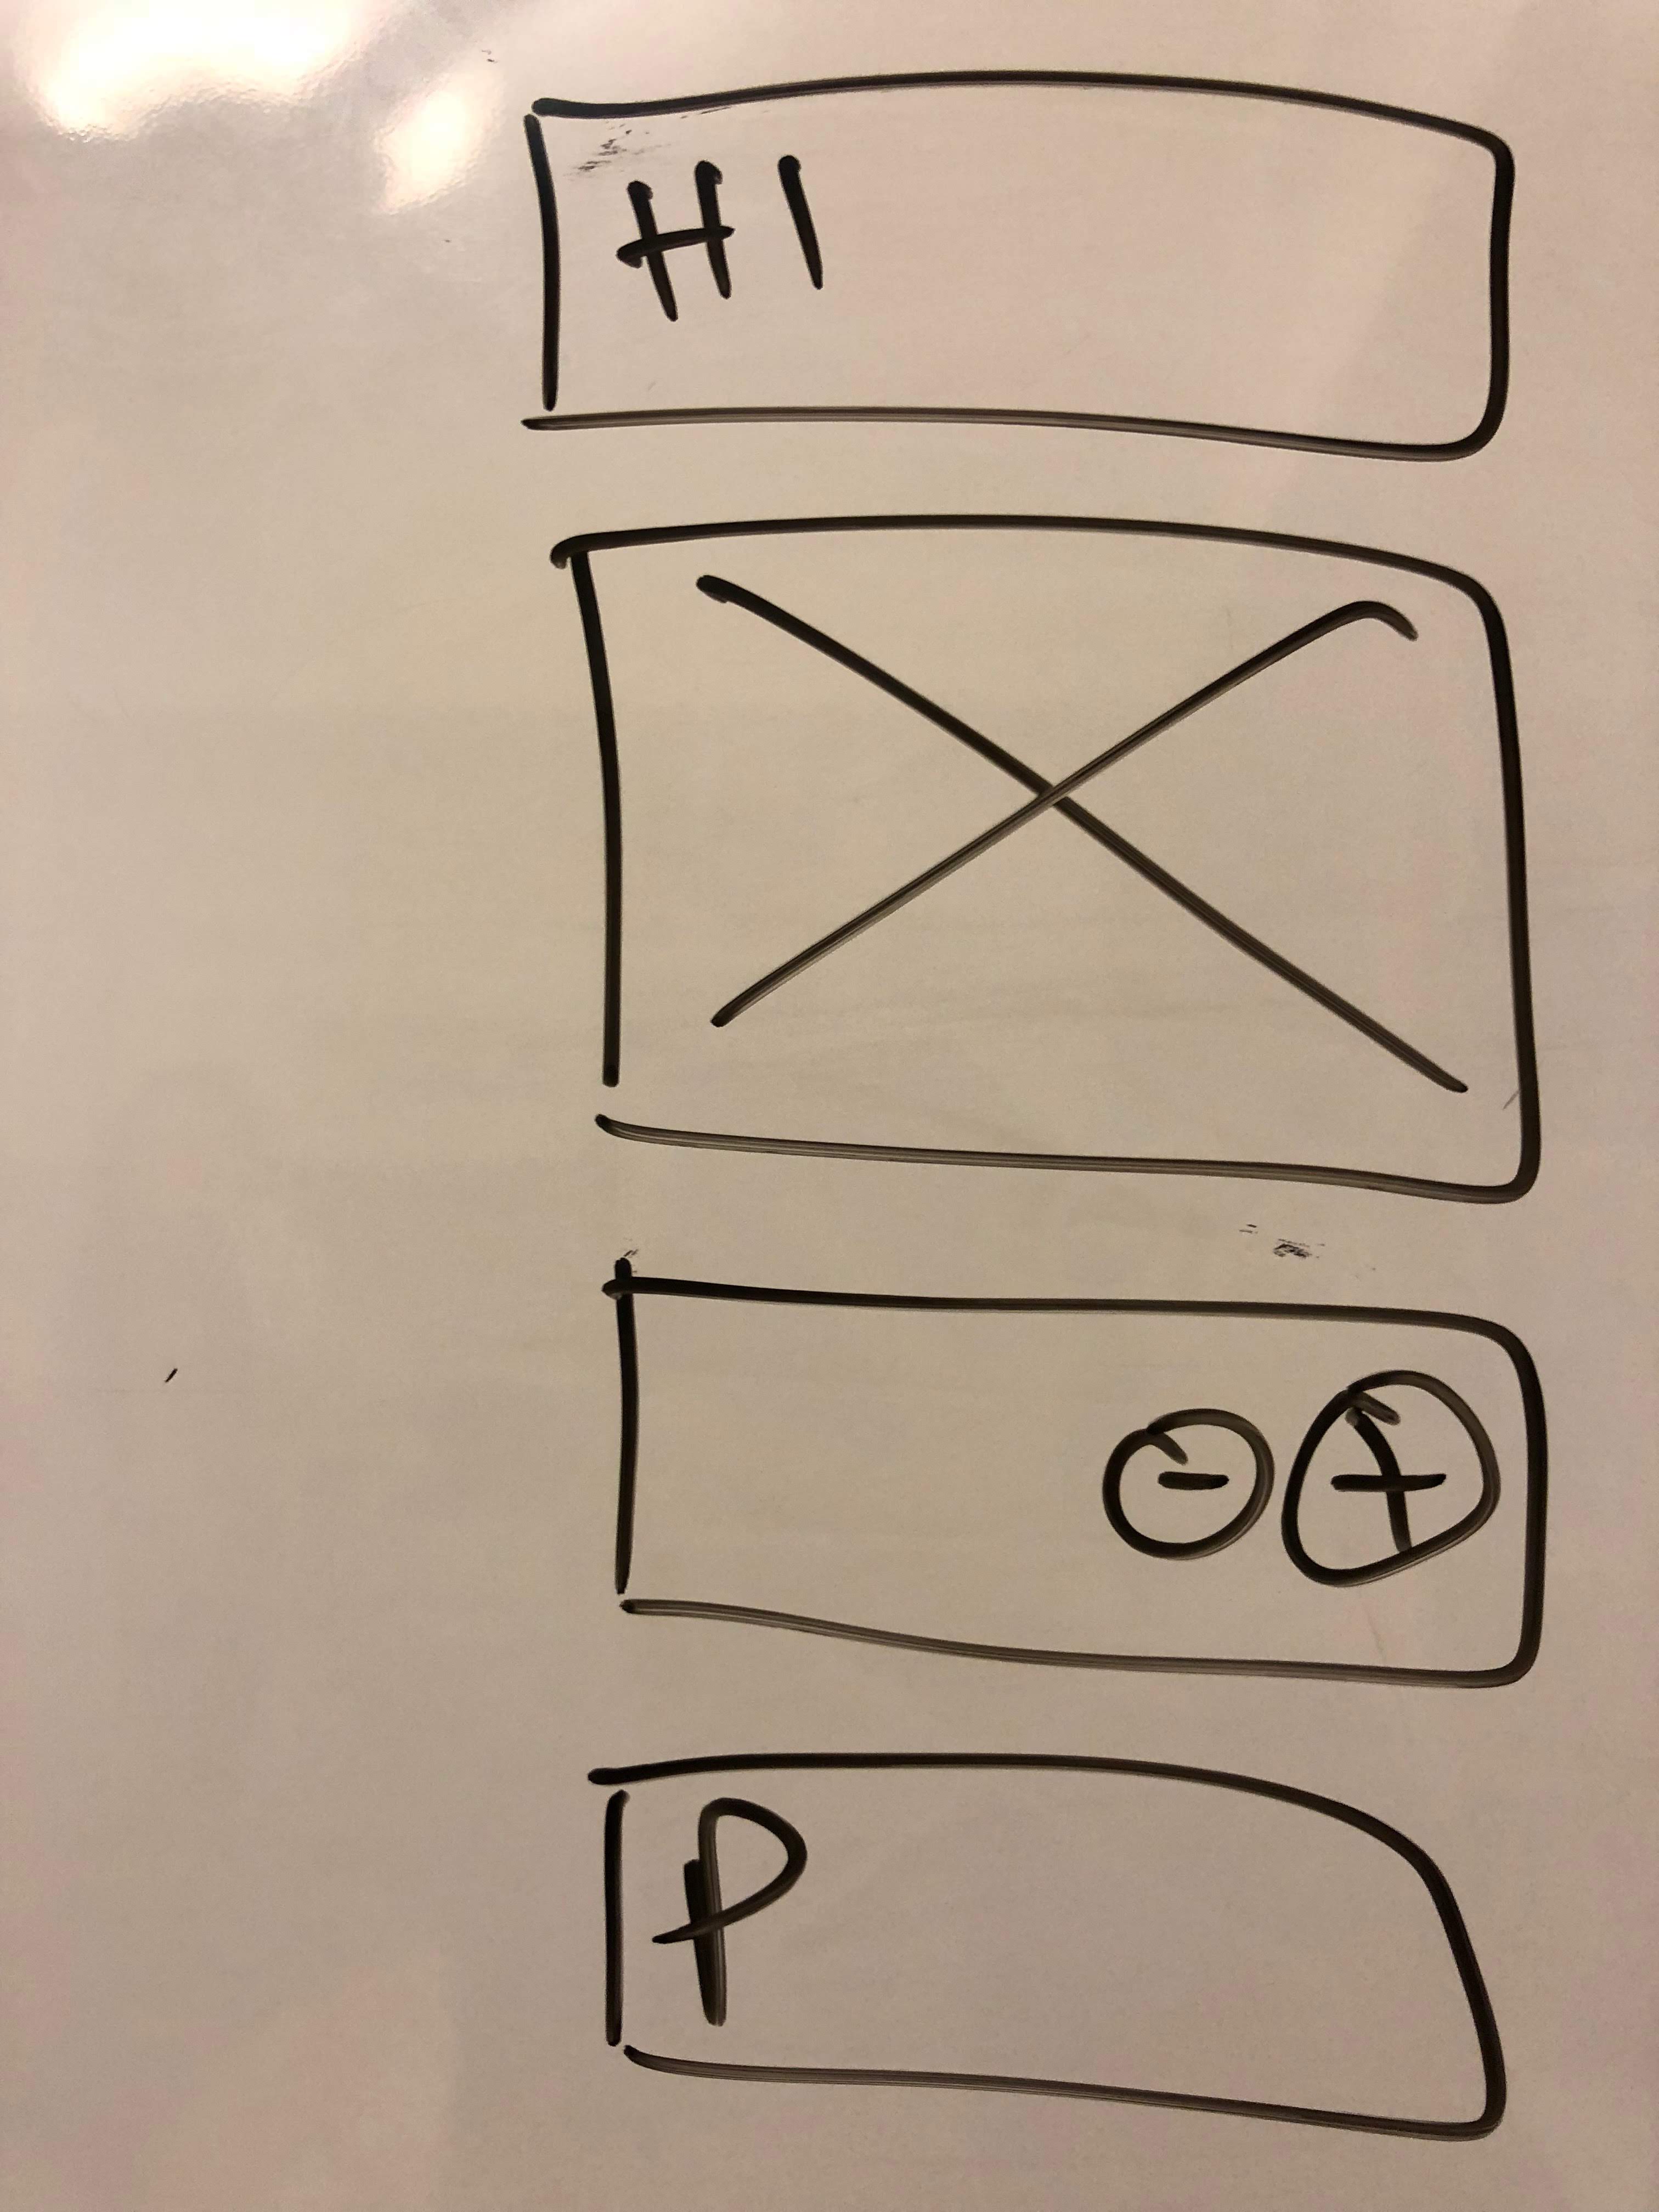 H1
- +
P